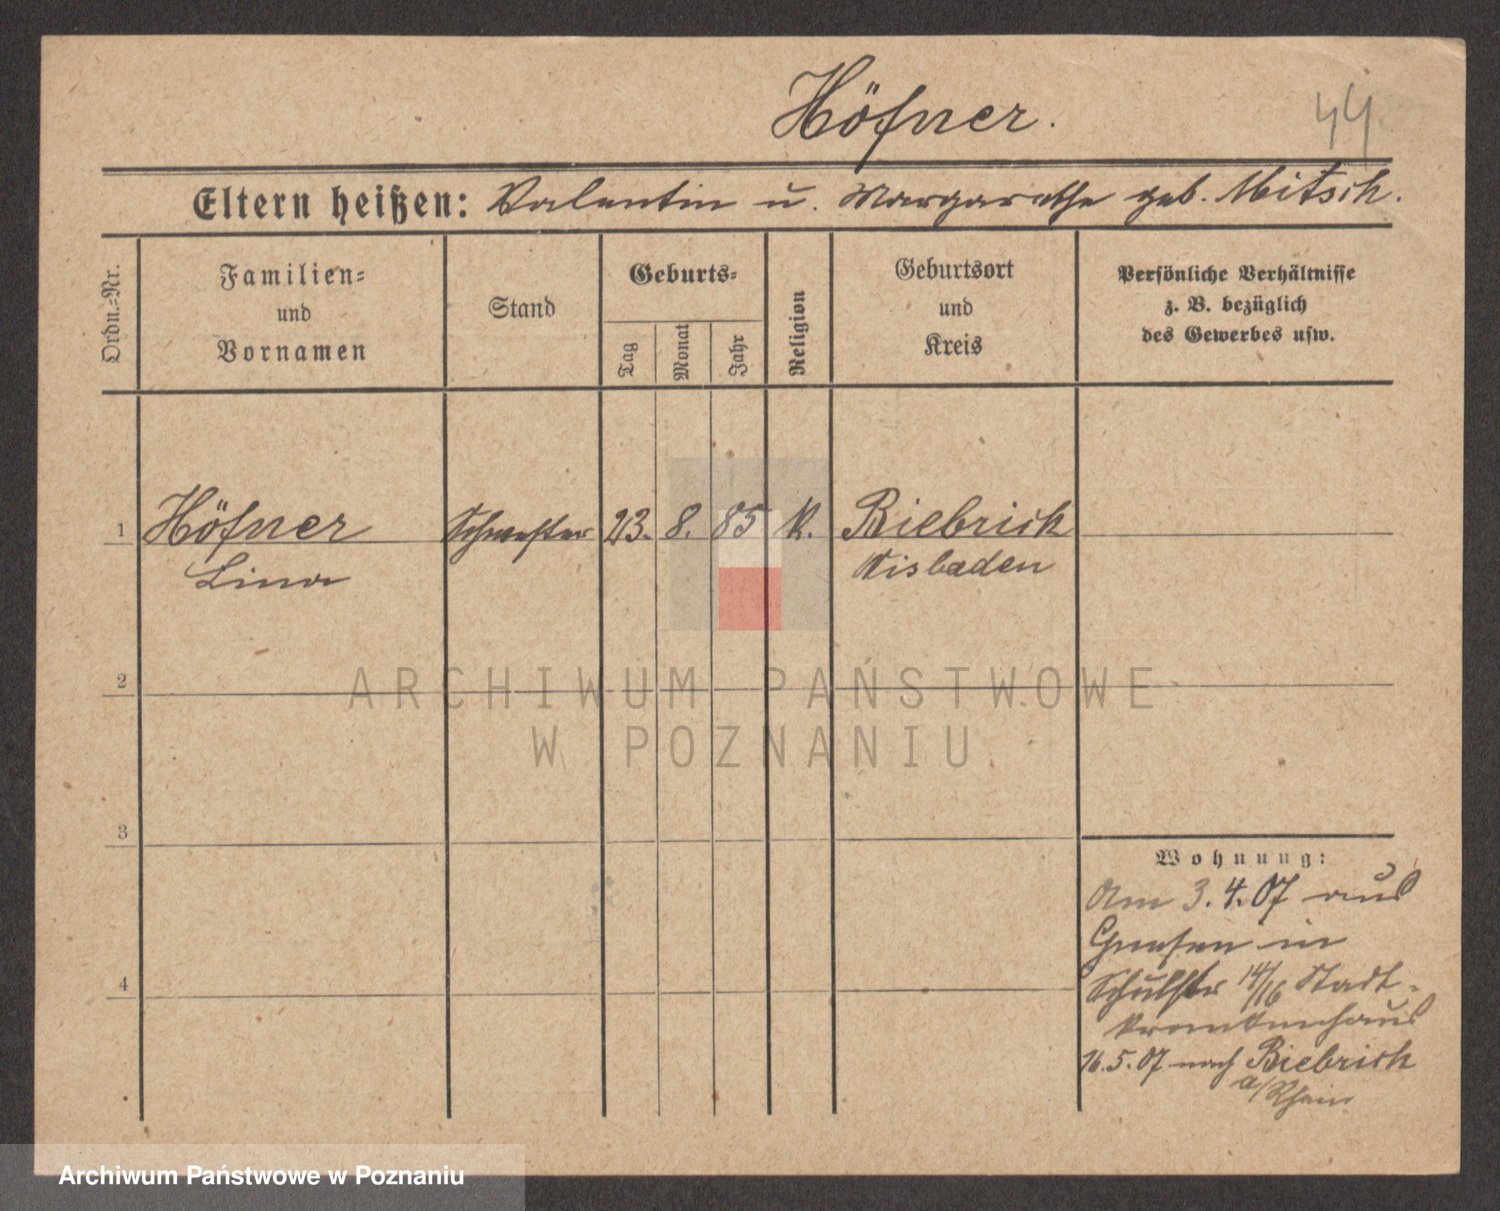 Höfner.
44
Eltern heißen: Valentin u. Margarethe geb. Mitsch.
Ordn.-Nr.
Familien-
und
Vornamen
Stand
Geburts-
Tag
Monat
Jahr
Religion
Geburtsort
und
Kreis
Persönliche Verhältnisse
z. B. bezüglich
des Gewerbes usw.
1 Höfner Schwester 23. 8. 85 K. Biebrich
Lina Wisbaden
2
3
4
Wohnung:
Am 3.4.07 aus
Gnesen in
Schulstr 14/16 Stadt-
krankenhaus
16.5.07 nach Biebrich
a/Rhein
ARCHIWUM PAŃSTWOWE
W POZNANIU
Archiwum Państwowe w Poznaniu